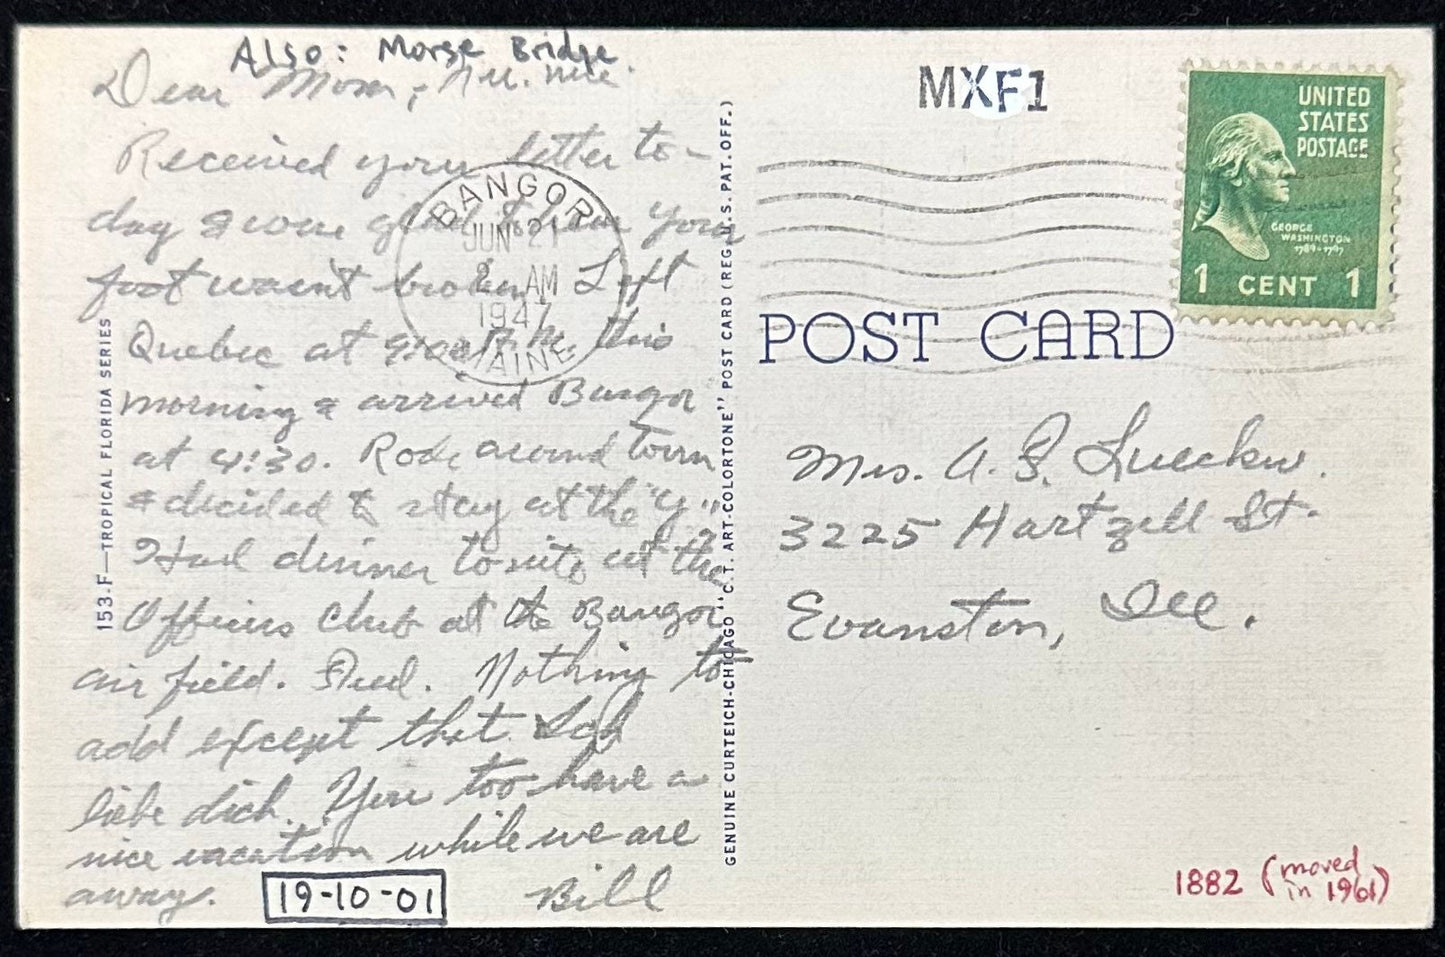 Also: Morse Bridge.
Dear Mom,
Received your letter to-
day & was glad to hear your
foot wasn't broken Left
Quebec at this
morning & arrived Bangor
at 4:30. Rode around town
& decided to stay at the "Y".
Had dinner to nite at the
Officers Club at the Bangor
air field. Nothing to
add except that Ich
liebe dich. You too have a
nice vacation while we are
away. Bill
19-10-01
153.F—TROPICAL FLORIDA SERIES
BANGOR
JUN 21
AM
1947
MAINE
GENUINE CURTEICH-CHICAGO "C.T. ART-COLORTONE" POST CARD (REG. U.S. PAT. OFF.)
MXF1
UNITED
STATES
POSTAGE
GEORGE
WASHINGTON
1789-1797
1 CENT 1
POST CARD
Mrs. A.
3225 Hartzell St.
Evanston, Ill.
1882 (moved
in 1961)